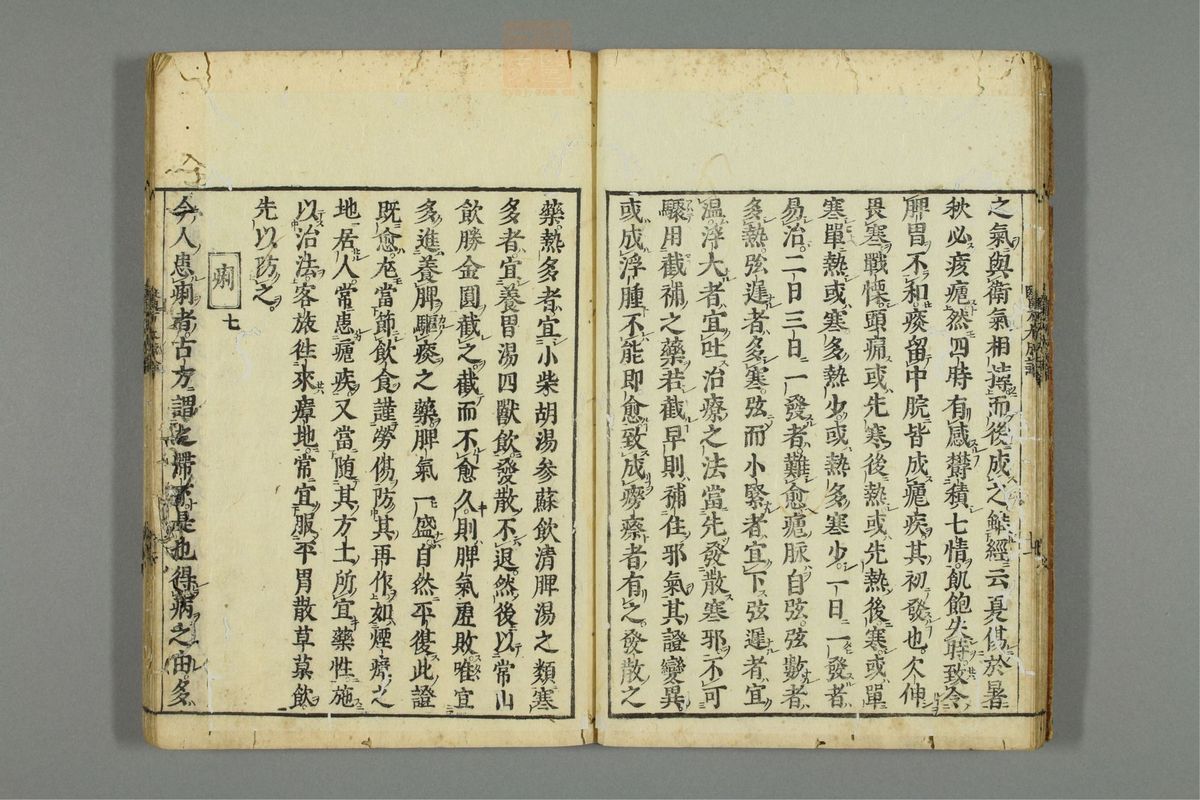 之氣與衛氣相搏而後成之雖經云夏傷於暑
秋必痎瘧然四時有感欝積七情飢飽失時致令
脾胃不和痰留中脘皆成瘧疾其初發也欠伸
畏寒戰慄頭痛或先寒後熱或先熱後寒或單
寒單熱或寒多熱少或熱多寒少一日一發者
易治二日三日一發者難愈瘧脉自弦弦數者
多熱弦遲者多寒弦而小緊者宜下弦遲者宜
溫浮大者宜吐治療之法當先發散寒邪不可
驟用截補之藥若截早則補住邪氣其證變異
或成浮腫不能即愈致成癆瘵者有之發散之
藥熱多者宜小柴胡湯参蘇飲清脾湯之類寒
多者宜養胃湯四獸飲發散不退然後以常山
飲勝金圓截之截而不愈久則脾氣虛敗唯宜
多進養脾驅痰之藥脾氣一盛自然平復此證
既愈尤當節飲食謹勞傷防其再作如煙瘴之
地居人常患瘧疾又當随其方土所宜藥性施
以治法客旅徃來瘴地常宜服平胃散草菓飲
先以防之
痢 七
今人患痢者古方謂之滯下是也得病之由多